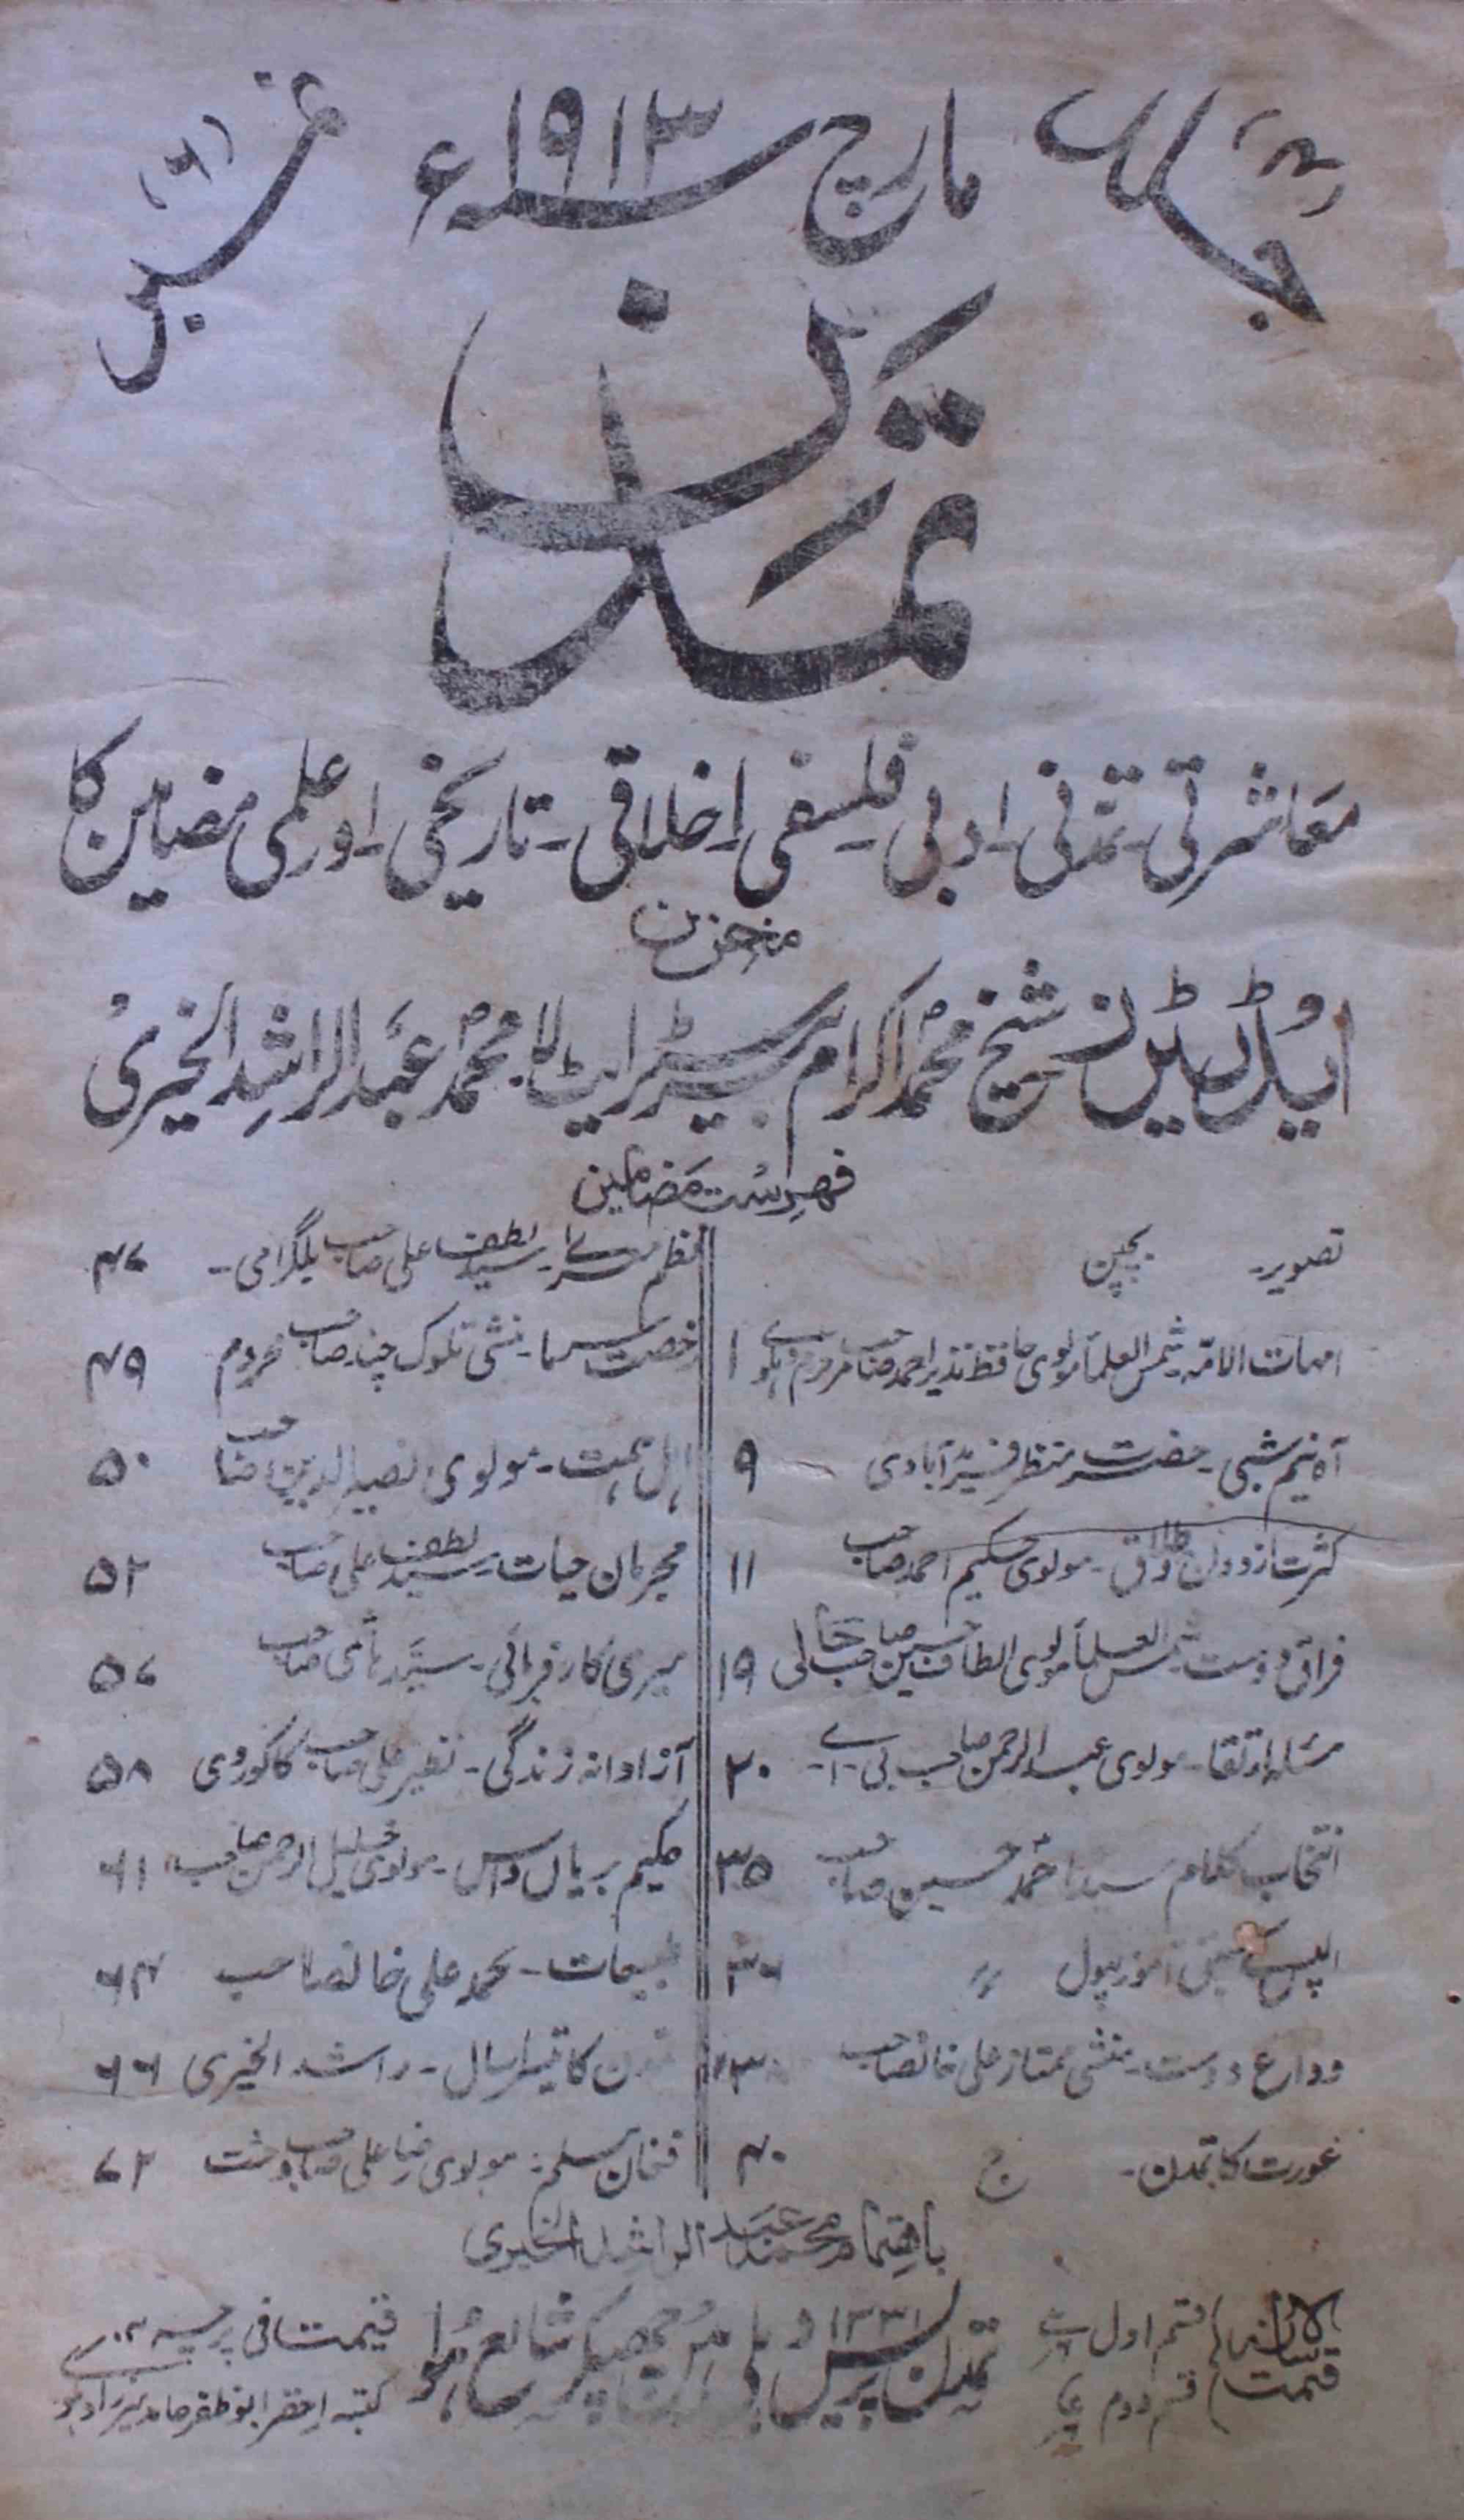 جلد
مارچ سنہ ۱۹۱۳ء
نمبر (۶)
تمدن
معاشرتی۔ تمدنی۔ ادبی۔ فلسفی۔ اخلاقی۔ تاریخی۔ اور علمی مضامین کا
مخزن
ایڈیٹرز شیخ محمد اکرام بیرسٹر ایٹ لا۔ محمد عبدالراشد الخیری
فہرست مضامین
تصویر۔ بچپن
امہات الامۃ۔ شمس العلماء مولوی حافظ نذیر احمد صاحب مرحوم دہلوی ۱
آہ نیم شبی۔ حضرت منتظر فیروزآبادی ۹
کثرت ازدواج و طلاق۔ مولوی حکیم احمد صاحب ۱۱
فراق دوست۔ شمس العلماء مولوی الطاف حسین صاحب حالی ۱۹
مسئلہ ارتقا۔ مولوی عبدالرحمن صاحب بی۔اے۔ ۲۰
انتخاب کلام سید احمد حسین صاحب ۳۵
۳۶
وداع دوست۔ منشی ممتاز علی خانصاحب
عورت کا تمدن۔ ج ۴۰
نظم سید لطف علی صاحب بلگرامی۔ ۴۷
رخصت سرما۔ منشی تلوک چند صاحب محروم ۴۹
اہل ہمت۔ مولوی نصیر الدین صاحب ۵۰
مجرمان حیات۔ سید لطف علی صاحب ۵۲
میری کارفرمائی۔ سید صاحب ۵۷
آزادانہ زندگی۔ نظیر علی صاحب کاکوروی ۵۸
حکیم بریاں داس۔ مولوی خلیل الرحمن صاحب ۶۱
محمد علی خانصاحب ۶۴
تمدن کا تیسرا سال۔ راشد الخیری ۶۶
فغان مسلم۔ مولوی رضا علی صاحب وحشت ۷۲
باہتمام محمد عبدالراشد الخیری
قیمت سالانہ قسم اول
قسم دوم
۱۳۳۱
تمدن پریس دہلی میں چھپکر شائع ہوا
قیمت فی پرچہ
کتبہ احقر ابو ظفر حامد